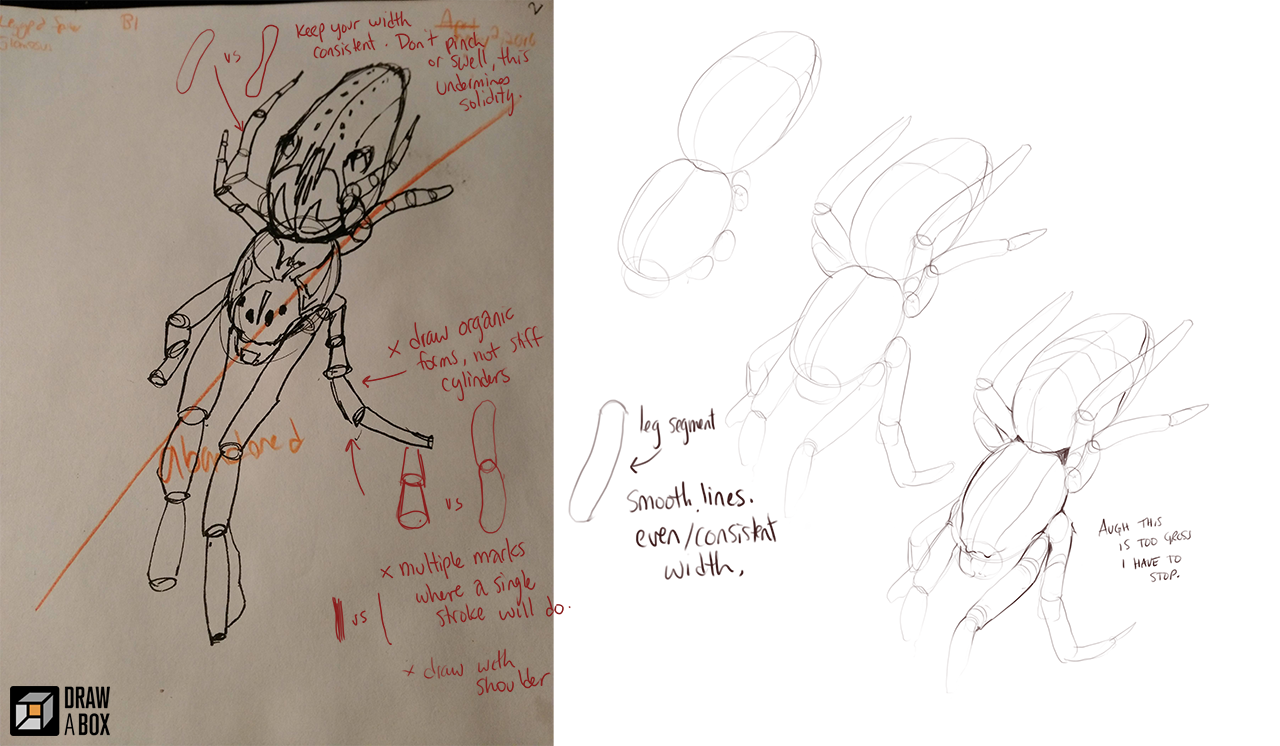 B1
2
April
2, 2016
vs
Keep your width
consistent. Don't pinch
or swell, this
undermines
solidity.
x draw organic
forms, not stiff
cylinders
abandoned
vs
x multiple marks
where a single
stroke will do.
vs
x draw with
shoulder
DRAW
A BOX
leg segment
smooth lines.
even/consistent
width,
AUGH THIS
IS TOO GROSS
I HAVE TO
STOP.